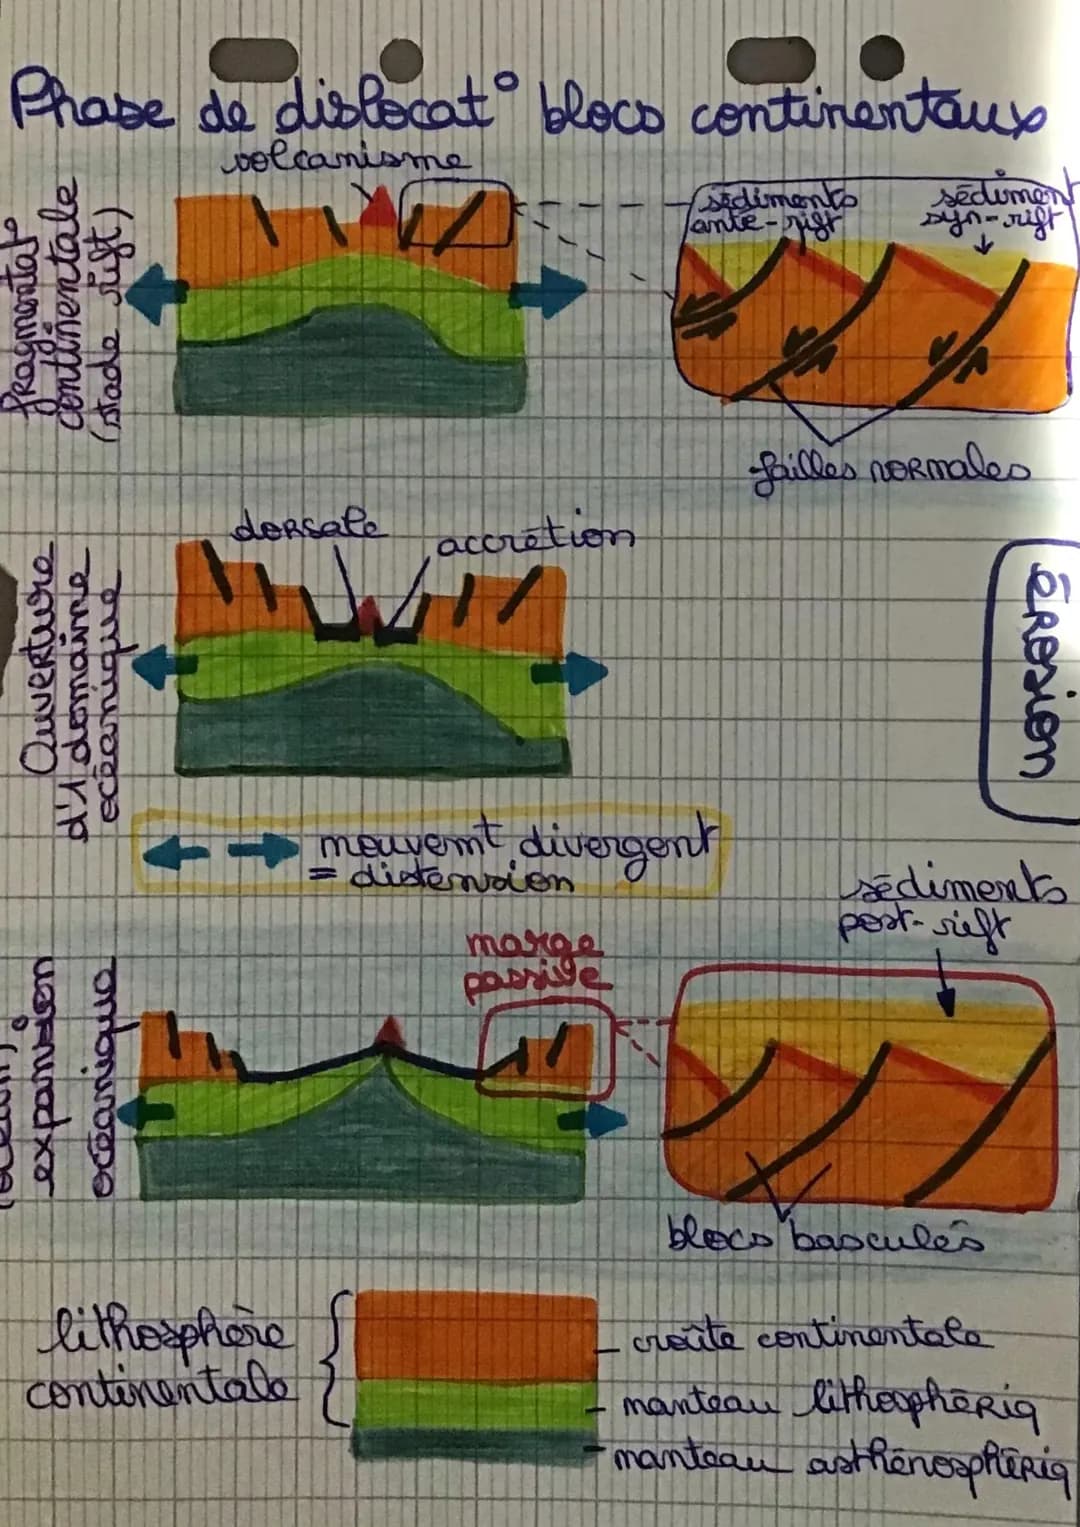 Phase de dislocat° blocs continentaux
volcanisme
fragmentat°
continentale
(stade rift)
sédiments
ante-rift
sédiment
syn-rift
failles normales
dorsale
accrétion
Ouverture
d'1 domaine
océanique
ÉROSION
mouvemt divergent
= distension
sédiments
post-rift
marge
passive
expansion
océanique
blocs basculés
lithosphère
continentale
croûte continentale
manteau lithosphériq
manteau asthénosphériq